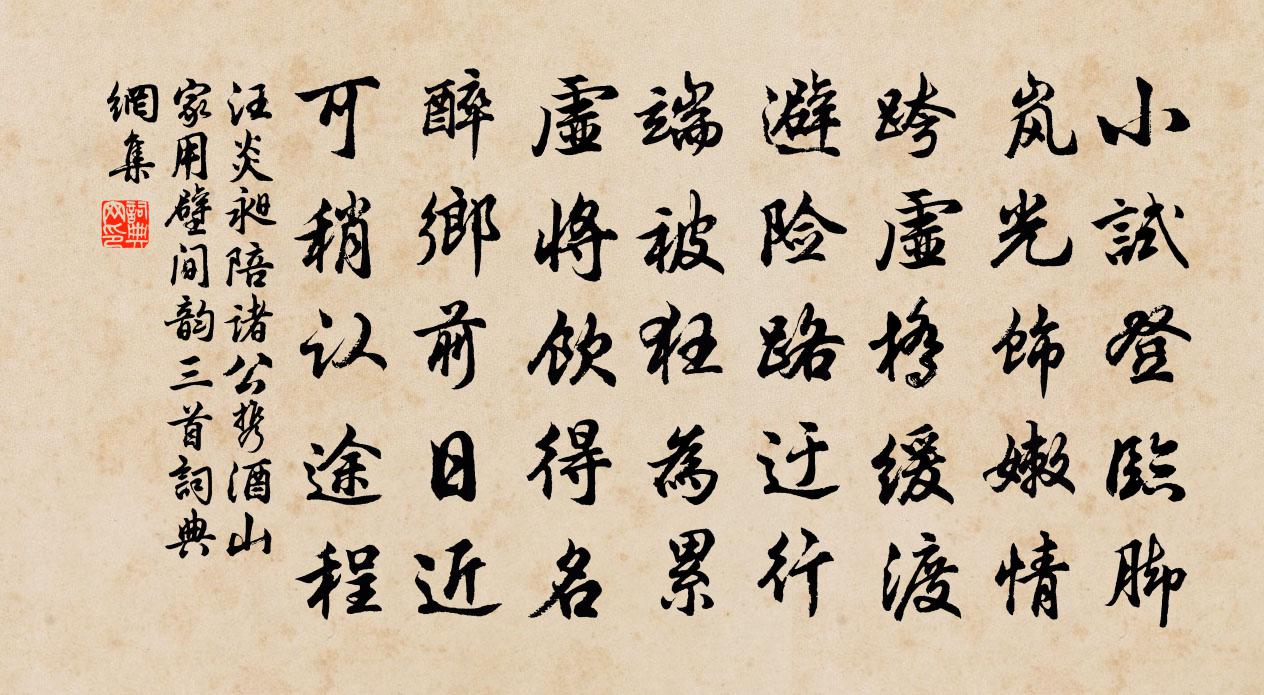 小試登臨脚
岚光飾嫩情
跨虛橋缓渡
避险路迂行
端被狂為累
虛將飲得名
醉鄉前日近
可稍认途程
汪炎昶陪诸公携酒山
家用壁间韵三首詞典
網集
詞典网印